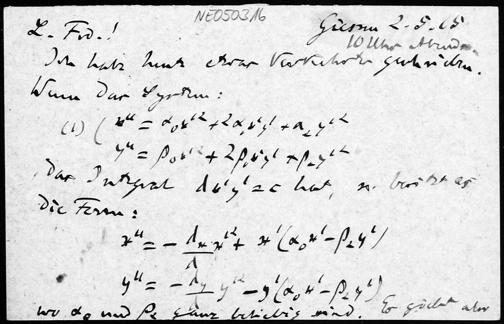 NE0503,16
L. Frd.!
Giessen 2-5-15
10 Uhr Abends
Ich habe heute etwas Verkehrtes geschrieben.
Wenn das System:
(1) ( x'' = α₀x'² + 2α₁x'y' + α₂y'²
y'' = β₀x'² + 2β₁x'y' + β₂y'²
das Integral λx'y' = c hat, so besitzt es
die Form:
x'' = - λₓ/λ x'² + x'(α₀x' - β₂y')
y'' = - λ_y/λ y'² - y'(α₀x' - β₂y')
wo α₀ und β₂ ganz beliebig sind. Es giebt aber